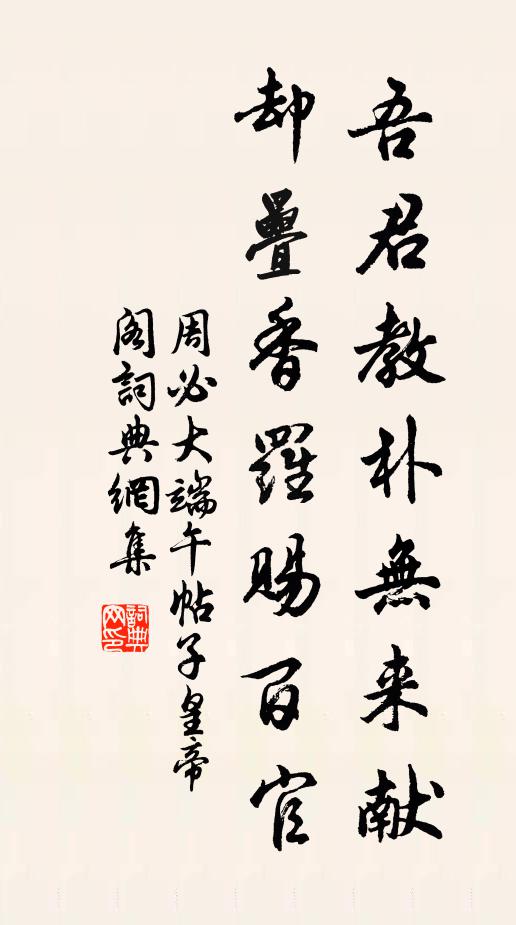 吾君教朴無来献
却疊香羅賜百官
周必大端午帖子皇帝
閣詞典網集
詞典
网印